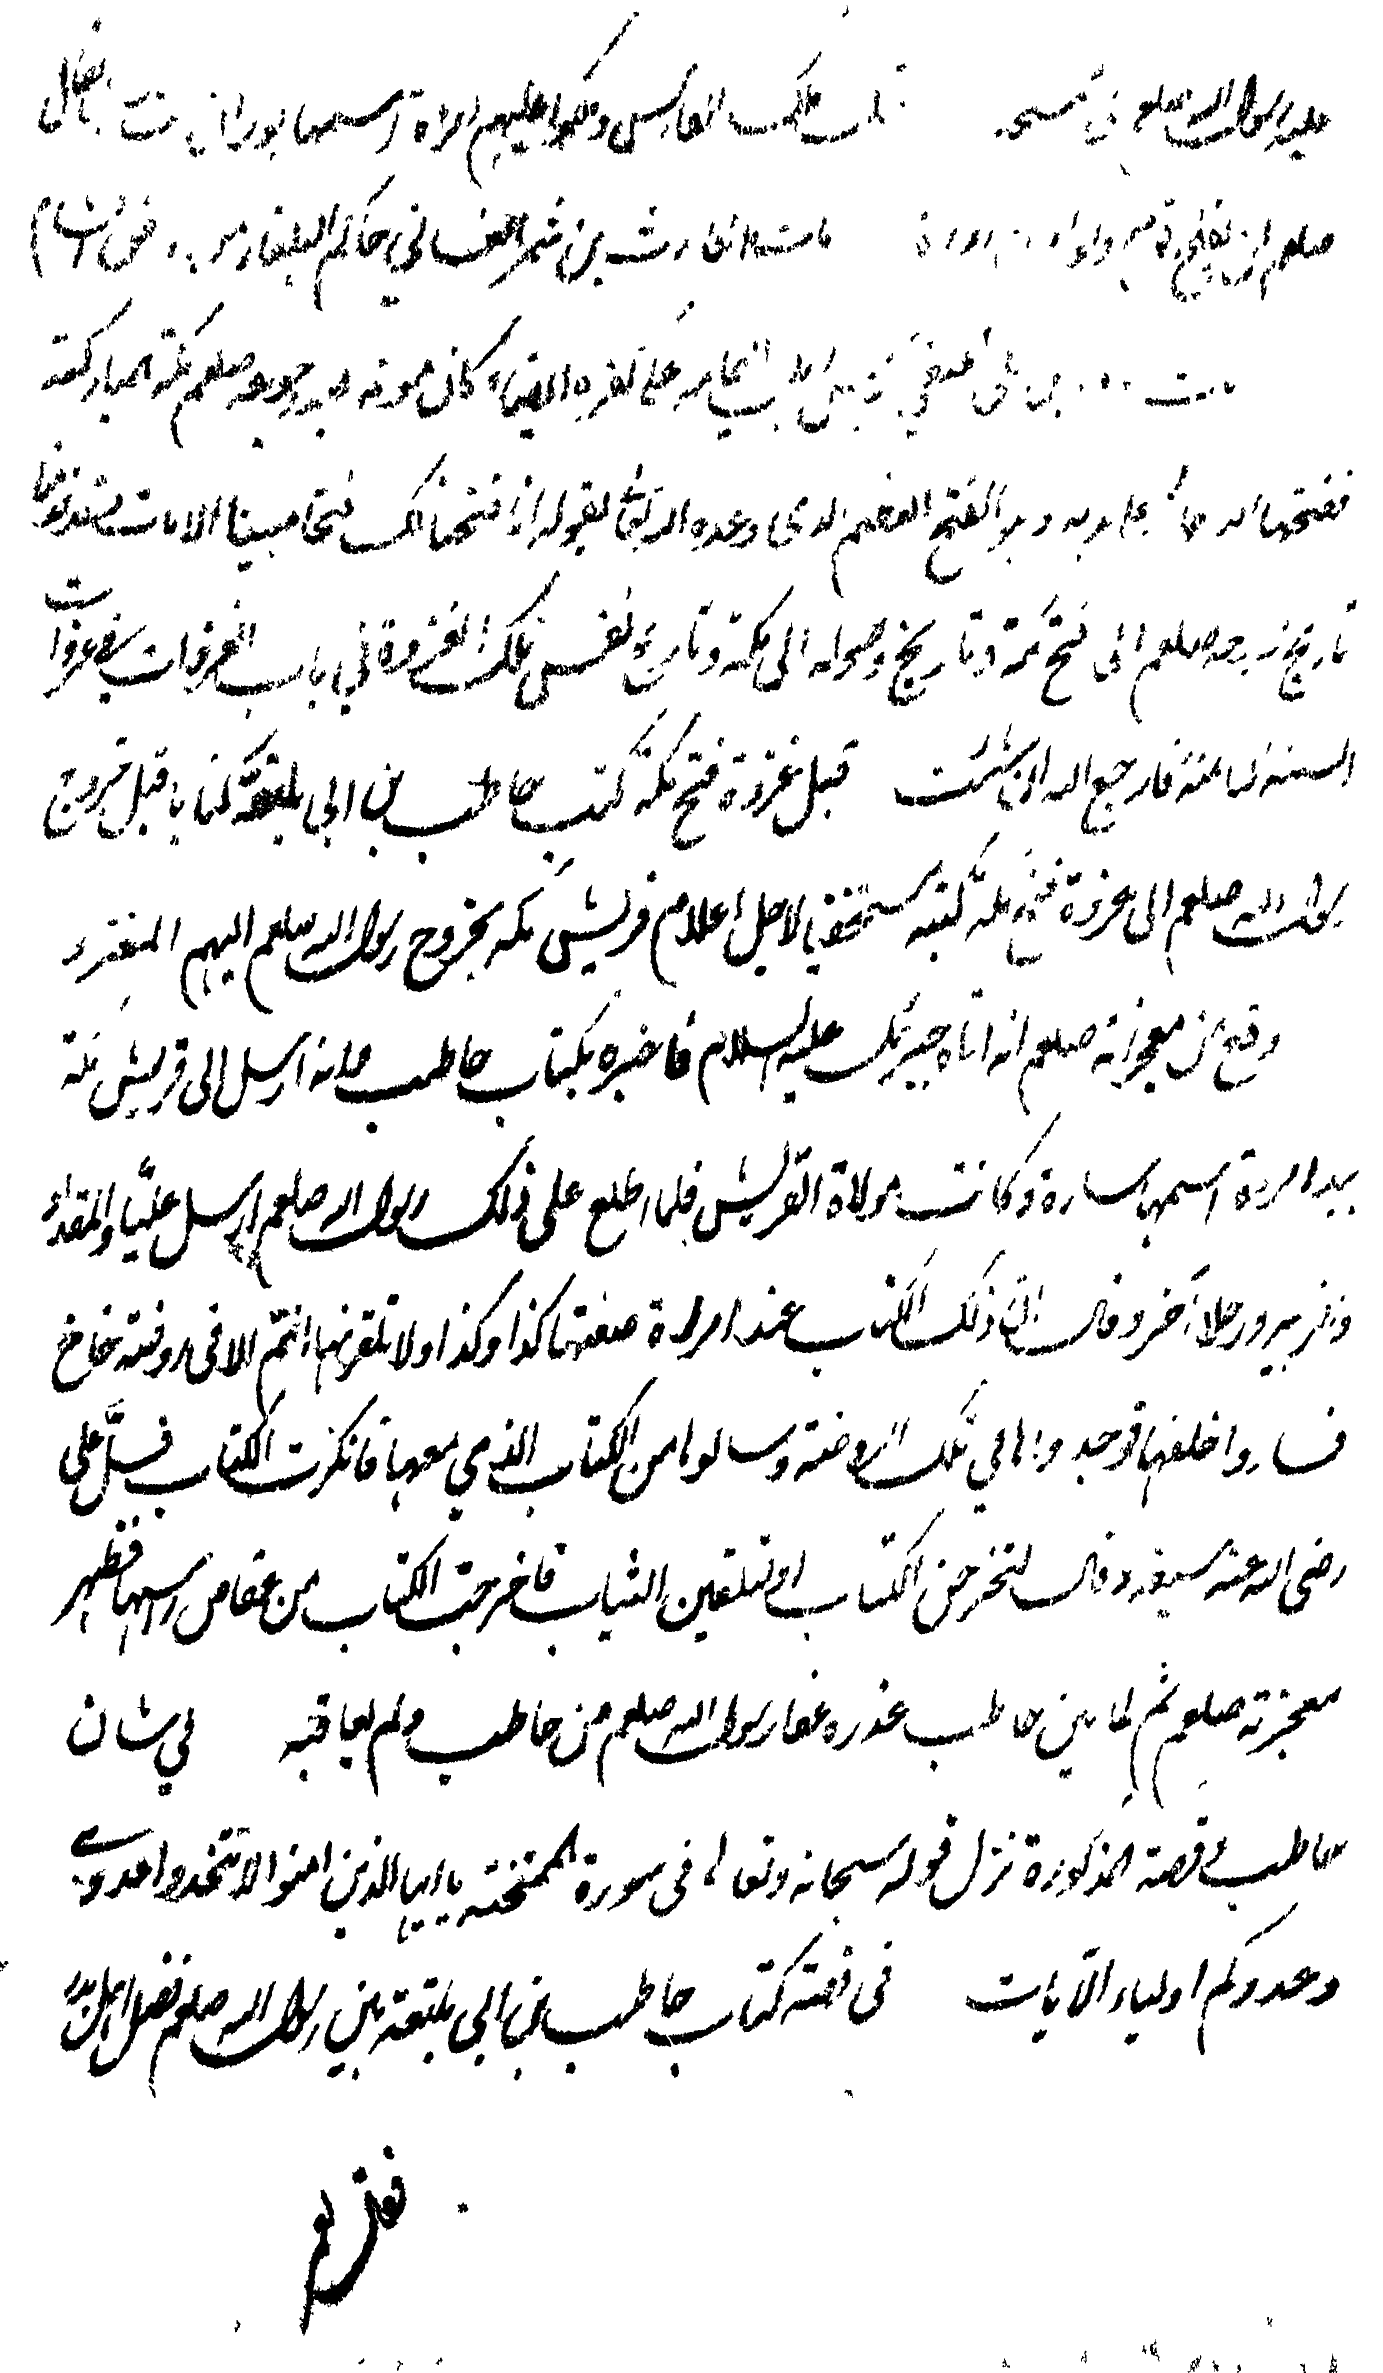 عليه رسول الله صلعم في قسمه ملك الفارس وملكوا عليهم امراة اسمها بوران بنت فقال
صلعم لن يفلح قوم ولوا امراة مات الحارث بن شمر الغساني حاكم البلقاء من ارض الشام
مات بن علي الحنفي رئيس اهل اليمامه على كفره ايضا وكان موته بعد رجوعه صلعم مكة المباركة
ففتحها الله وهو الفتح العظيم الذى وعده الله تعالى بقوله انا فتحنا لك فتحا مبينا الايات
تاريخ خروجه صلعم الى فتح مكة وتاريخ وصوله الى مكة وتاريخ نفس تلك الغزوة في باب الغزوات في غزوات
السنة الثامنة فارجع اليه ان شئت قبل غزوة فتح مكة كتب حاطب بن ابي بلتعة كتابا قبل خروج
رسول الله صلعم الى غزوة فتح مكة كتبه مستخفيا لاجل اعلام قريش مكه بخروج رسول الله صلعم اليهم
وقع من معجزاته صلعم انه اتاه جبرئيل عليه السلام فاخبره بكتاب حاطب وانه ارسل الى قريش مكة
بيد امراة اسمها سارة وكانت مولاة القريش فلما اطلع على ذلك رسول الله صلعم ارسل عليّا والمقداد
والزبير ورجلا آخر وقال ان ذلك الكتاب عند امراة صفتها كذا وكذا ولا تلقونها انتم الا في روضة خاخ
فساروا خلفها فوجدوها في تلك الروضة وسالوا من الكتاب الذي معها فانكرت الكتاب فسلّ علي
رضى الله عنه سيفه وقال لتخرجن الكتاب او لتلقين الثياب فاخرجت الكتاب من عقاص راسها فظهر
معجزته صلعم ثم لما بين حاطب عذره عفا رسول الله صلعم من حاطب ولم يعاقبه في شان
حاطب وقصة المذكورة نزل قوله سبحانه وتعالى في سورة الممتحنة يا ايها الذين امنوا لا تتخذوا عدوي
وعدوكم اولياء الآيات في قصة كتاب حاطب بن ابي بلتعة بين رسول الله صلعم فضل اهل بدر